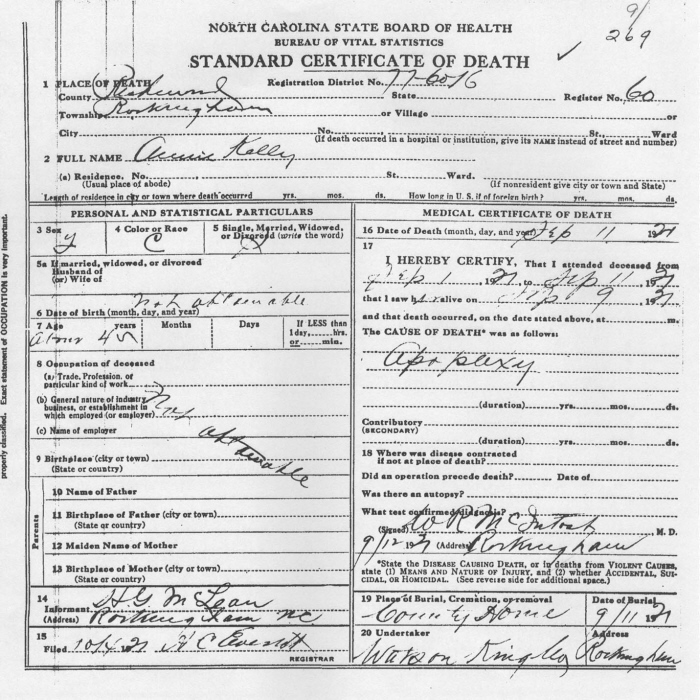 9/
269
NORTH CAROLINA STATE BOARD OF HEALTH
BUREAU OF VITAL STATISTICS
STANDARD CERTIFICATE OF DEATH
1 PLACE OF DEATH Registration District No. 77-6016
County Richmond State Register No. 60
Township Rockingham or Village or
City No. St., Ward
(If death occurred in a hospital or institution, give its NAME instead of street and number)
2 FULL NAME Annie Kelly
(a) Residence. No. St. Ward.
(Usual place of abode) (If nonresident give city or town and State)
Length of residence in city or town where death occurred yrs. mos. ds. How long in U. S. if of foreign birth? yrs. mos. ds.
PERSONAL AND STATISTICAL PARTICULARS
3 Sex 4 Color or Race 5 Single, Married, Widowed, or Divorced (write the word)
C
5a If married, widowed, or divorced
Husband of
(or) Wife of
not obtainable
6 Date of birth (month, day, and year)
7 Age years Months Days If LESS than
about 45 1 day, hrs.
or min.
8 Occupation of deceased
(a) Trade, Profession, or
particular kind of work
(b) General nature of industry
business, or establishment in
which employed (or employer) Not
(c) Name of employer obtainable
9 Birthplace (city or town)
(State or country)
Parents
10 Name of Father
11 Birthplace of Father (city or town)
(State or country)
12 Maiden Name of Mother
13 Birthplace of Mother (city or town)
(State or country)
14 Informant H G McLean
(Address) Rockingham NC
15 Filed 10/4 1921 Everett
REGISTRAR
MEDICAL CERTIFICATE OF DEATH
16 Date of Death (month, day, and year) Sep 11 1921
17
I HEREBY CERTIFY, That I attended deceased from
Sep 1, 1921, to Sep 11, 1921
that I saw h alive on Sep 9, 1921
and that death occurred, on the date stated above, at m.
The CAUSE OF DEATH* was as follows:
Apoplexy
(duration) yrs. mos. ds.
Contributory
(SECONDARY)
(duration) yrs. mos. ds.
18 Where was disease contracted
if not at place of death?
Did an operation precede death? Date of
Was there an autopsy?
What test confirmed diagnosis?
(Signed) W R McIntosh M. D.
9/12 1921 (Address) Rockingham
*State the DISEASE CAUSING DEATH, or in deaths from VIOLENT CAUSES,
state (1) MEANS AND NATURE OF INJURY, and (2) whether ACCIDENTAL, SUI-
CIDAL, or HOMICIDAL. (See reverse side for additional space.)
19 Place of Burial, Cremation, or removal Date of Burial
County Home 9/11 1921
20 Undertaker Address
Watson King Co Rockingham
properly classified. Exact statement of OCCUPATION is very important.